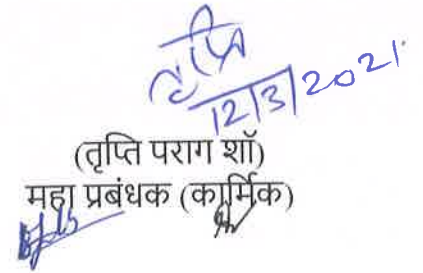 तृप्ति
12/3/2021
(तृप्ति पराग शॉ)
महा प्रबंधक (कार्मिक)